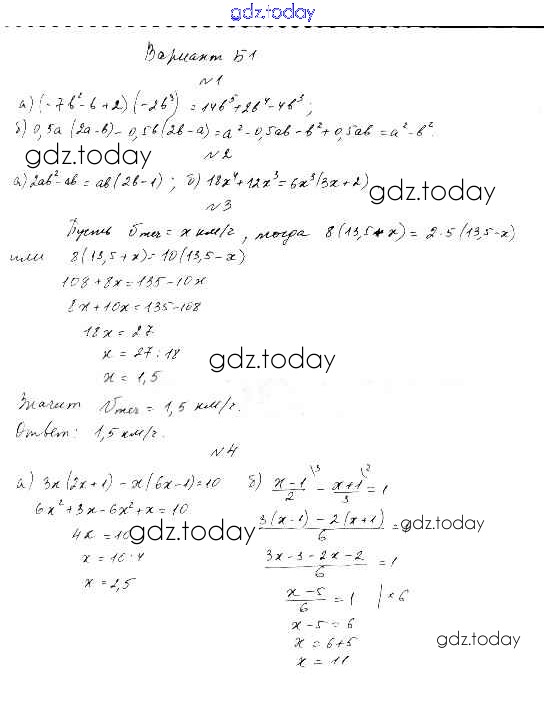 gdz.today
Вариант Б1
№1
а) (-7b²-b+2)(-2b³) = 14b⁵+2b⁴-4b³;
б) 0,5a(2a-b)-0,5b(2b-a)=a²-0,5ab-b²+0,5ab=a²-b².
gdz.today
№2
а) 2ab²-ab=ab(2b-1); б) 18x⁴+12x³=6x³(3x+2)
gdz.today
№3
Пусть Vтеч = x км/г, тогда 8(13,5+x) = 2·5(13,5-x)
или 8(13,5+x)=10(13,5-x)
108+8x=135-10x
8x+10x=135-108
18x=27
x=27:18
gdz.today
x=1,5
Значит Vтеч = 1,5 км/г.
Ответ: 1,5 км/г.
№4
а) 3x(2x+1)-x(6x-1)=10
6x²+3x-6x²+x=10
4x=10
gdz.today
x=10:4
x=2,5
б) (x-1)/2 \3 - (x+1)/3 \2 = 1
(3(x-1)-2(x+1))/6 =
gdz.today
(3x-3-2x-2)/6 = 1
(x-5)/6 = 1 |×6
x-5=6
x=6+5
gdz.today
x=11